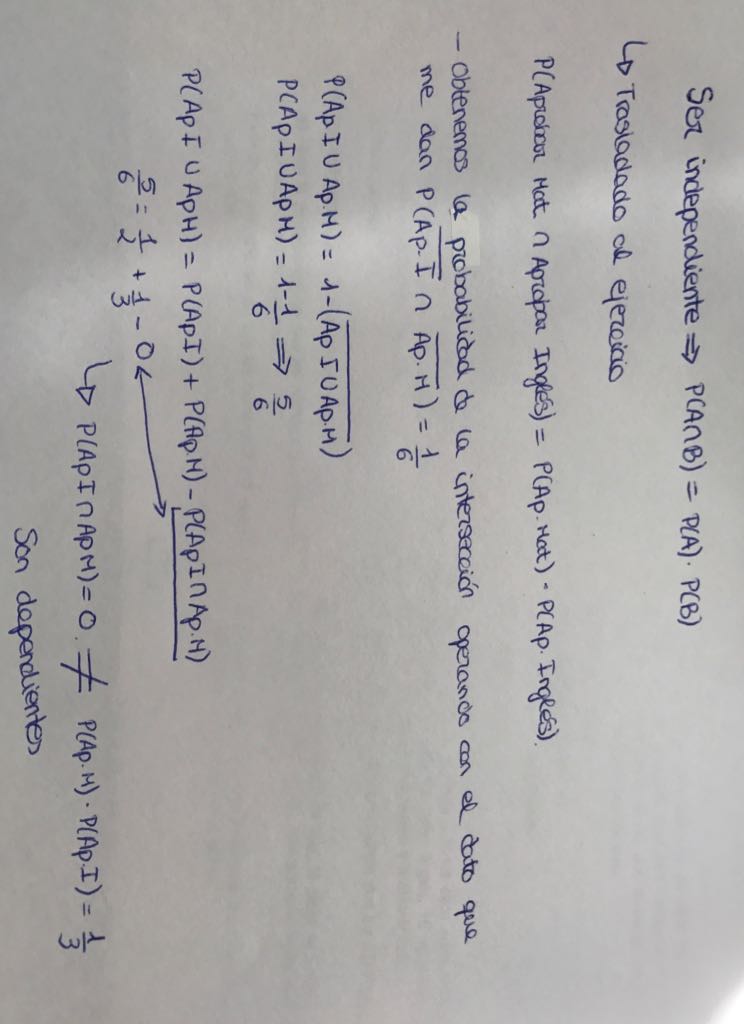 Ser independiente ⇒ P(A∩B) = P(A) · P(B)
↳ Trasladado al ejercicio
P(Aprobar Mat ∩ Aprobar Inglés) = P(Ap. Mat) · P(Ap. Inglés).
- Obtenemos la probabilidad de la intersección operando con el dato que
me dan P(\overline{Ap. I} ∩ \overline{Ap. M}) = 1/6
P(Ap I ∪ Ap. M) = 1 - (\overline{Ap I ∪ Ap. M})
P(Ap I ∪ Ap M) = 1 - 1/6 ⇒ 5/6
P(Ap I ∪ Ap M) = P(Ap I) + P(Ap. M) - P(Ap I ∩ Ap. M)
5/6 = 1/2 + 1/3 - 0
↳ P(Ap I ∩ Ap M) = 0. ≠ P(Ap. M) · P(Ap. I) = 1/3
Son dependientes